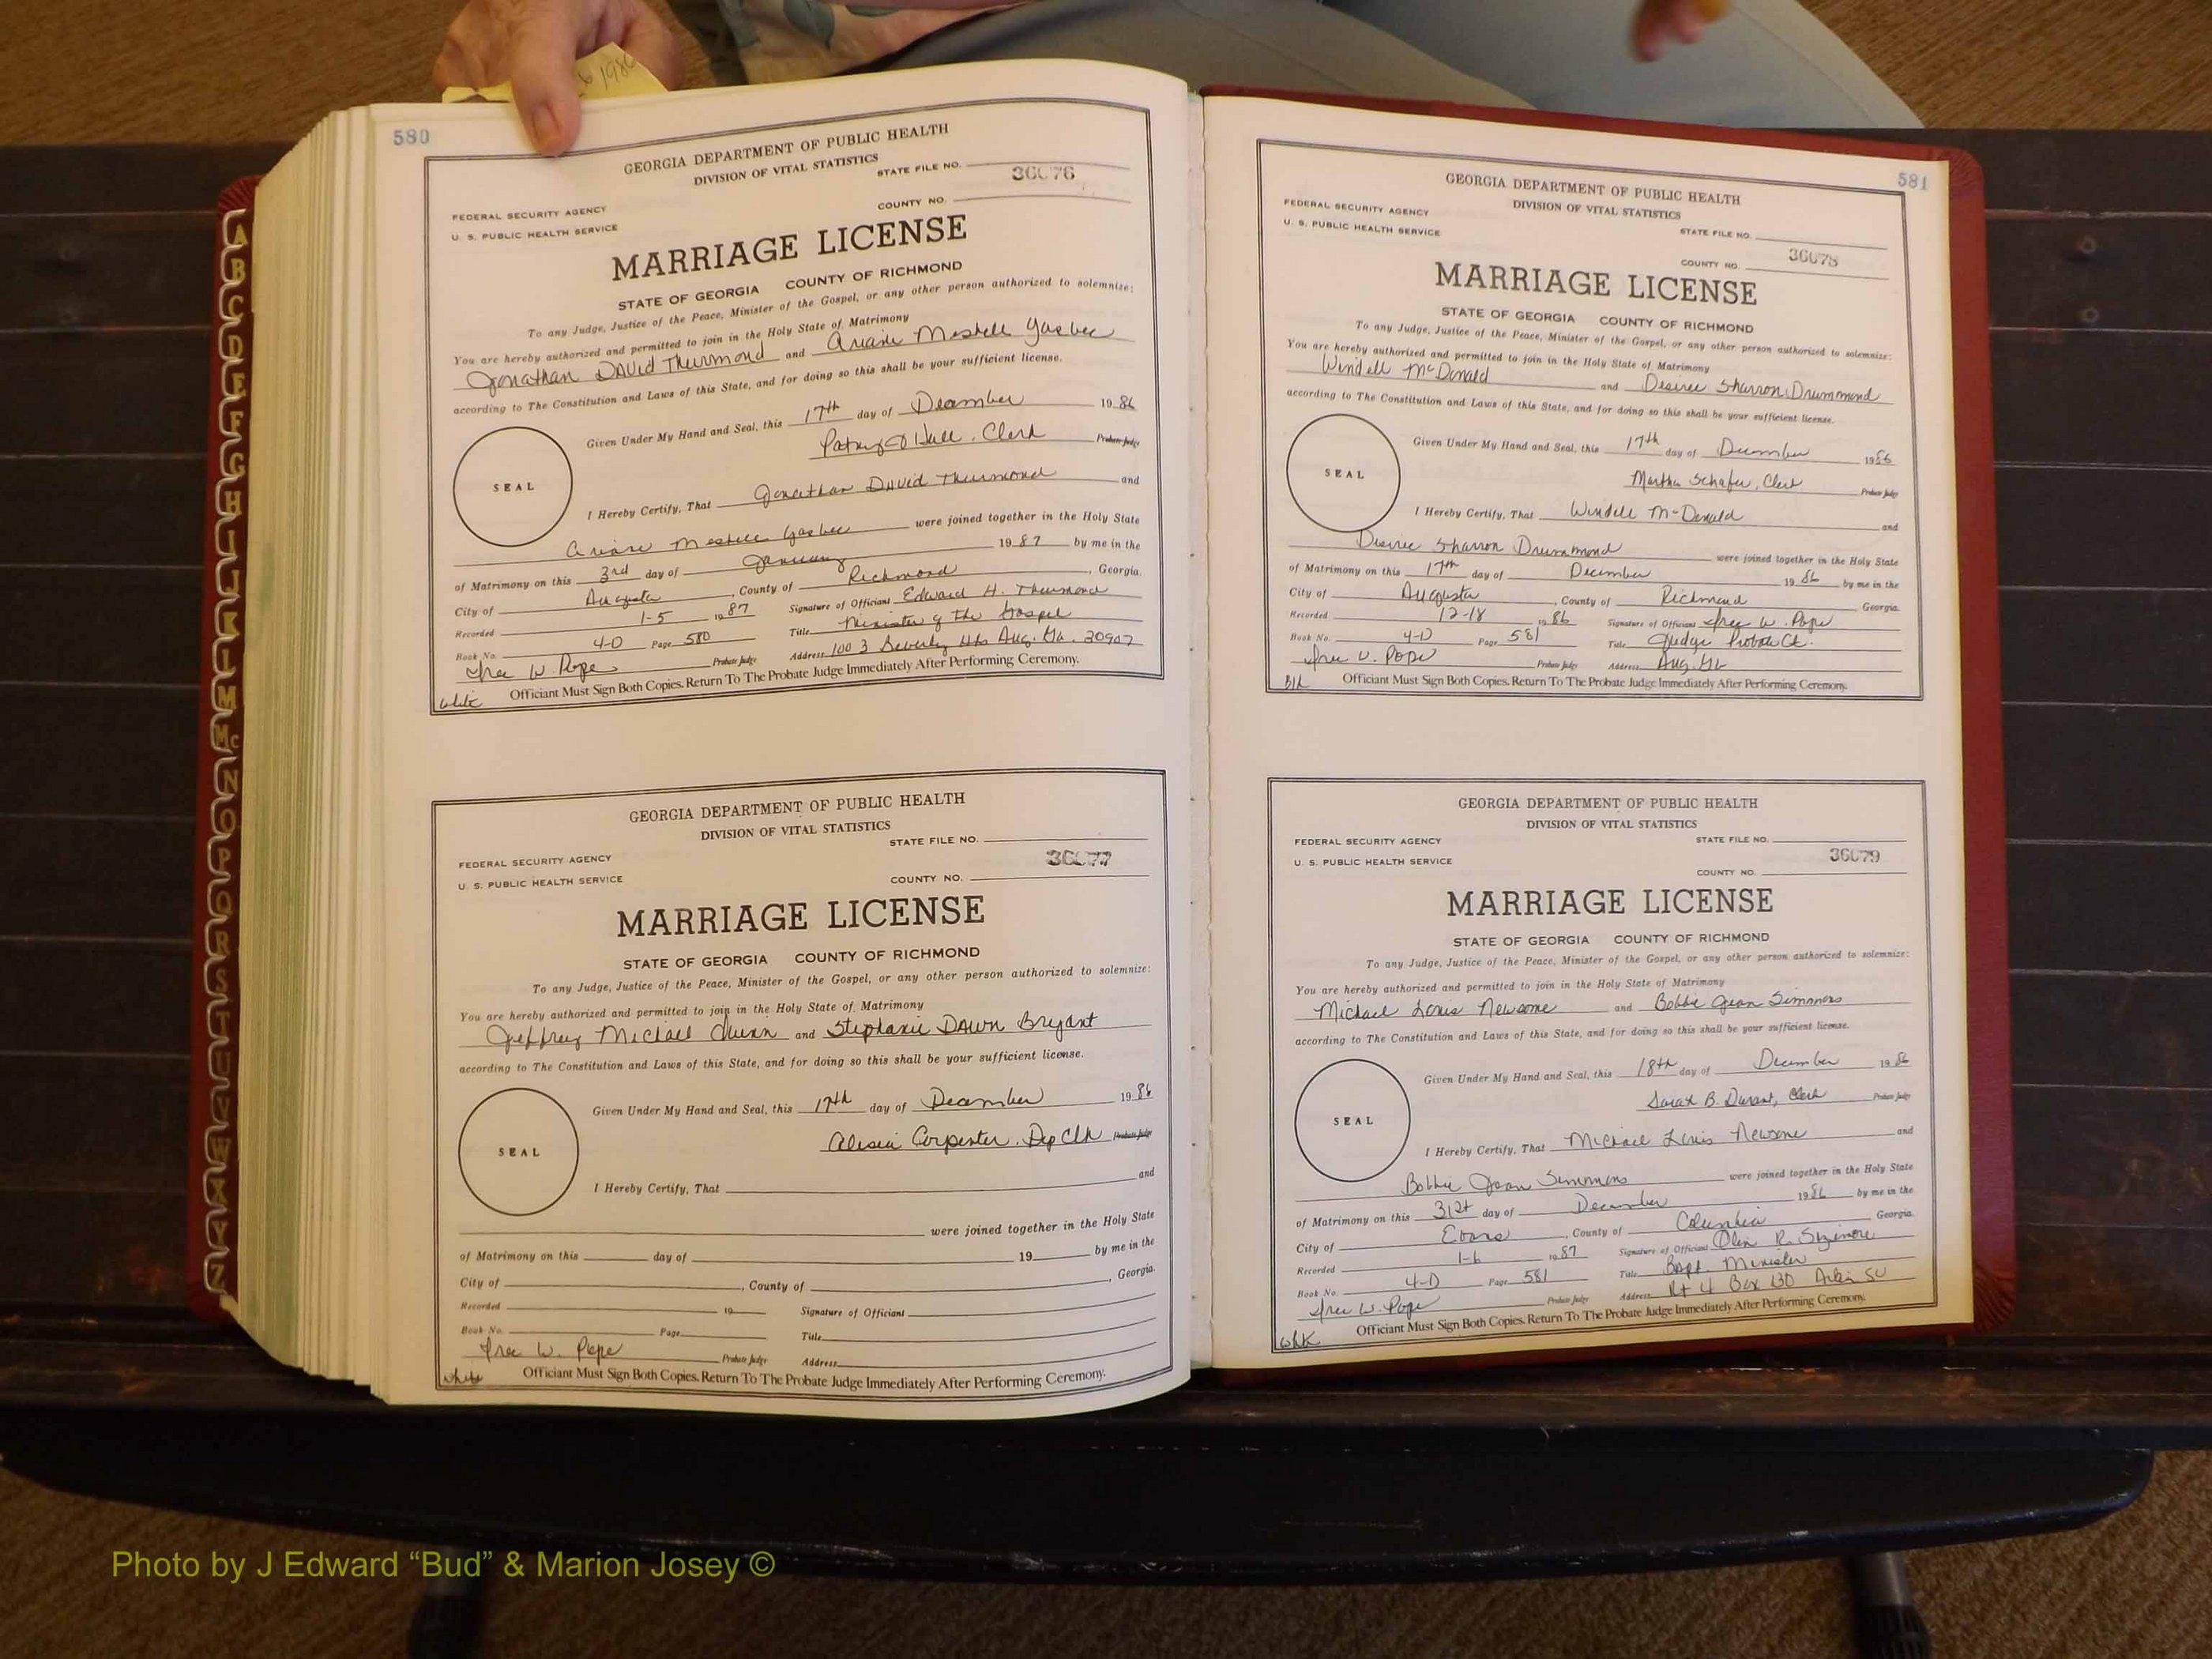 6 1986
580
GEORGIA DEPARTMENT OF PUBLIC HEALTH
DIVISION OF VITAL STATISTICS
STATE FILE NO.
36076
FEDERAL SECURITY AGENCY
U. S. PUBLIC HEALTH SERVICE
COUNTY NO.
MARRIAGE LICENSE
STATE OF GEORGIA COUNTY OF RICHMOND
To any Judge, Justice of the Peace, Minister of the Gospel, or any other person authorized to solemnize:
You are hereby authorized and permitted to join in the Holy State of Matrimony
Jonathan David Thurmond and Ariane
according to The Constitution and Laws of this State, and for doing so this shall be your sufficient license.
Given Under My Hand and Seal, this 17th day of December 1986
Hall, Clerk Probate Judge
SEAL
I Hereby Certify, That Jonathan David Thurmond and
Ariane were joined together in the Holy State
of Matrimony on this 3rd day of January 1987 by me in the
City of Augusta, County of Richmond, Georgia.
Recorded 1-5 1987 Signature of Officiant Edward H. Thurmond
Book No. 4-D Page 580 Title Minister of the Gospel
Probate Judge Address 1003 Beverly Hts Aug. Ga. 20907
W. Pope
white Officiant Must Sign Both Copies. Return To The Probate Judge Immediately After Performing Ceremony.
GEORGIA DEPARTMENT OF PUBLIC HEALTH
DIVISION OF VITAL STATISTICS
STATE FILE NO.
36077
FEDERAL SECURITY AGENCY
U. S. PUBLIC HEALTH SERVICE
COUNTY NO.
MARRIAGE LICENSE
STATE OF GEORGIA COUNTY OF RICHMOND
To any Judge, Justice of the Peace, Minister of the Gospel, or any other person authorized to solemnize:
You are hereby authorized and permitted to join in the Holy State of Matrimony
Jeffrey Michael and Stephanie Dawn Bryant
according to The Constitution and Laws of this State, and for doing so this shall be your sufficient license.
Given Under My Hand and Seal, this 17th day of December 1986
Alesia Carpenter, Dep Clk Probate Judge
SEAL
I Hereby Certify, That and
were joined together in the Holy State
of Matrimony on this day of 19 by me in the
City of , County of , Georgia.
Recorded 19 Signature of Officiant
Book No. Page Title
W. Pope Probate Judge Address
white Officiant Must Sign Both Copies. Return To The Probate Judge Immediately After Performing Ceremony.
581
GEORGIA DEPARTMENT OF PUBLIC HEALTH
DIVISION OF VITAL STATISTICS
FEDERAL SECURITY AGENCY
U. S. PUBLIC HEALTH SERVICE
STATE FILE NO.
36078
COUNTY NO.
MARRIAGE LICENSE
STATE OF GEORGIA COUNTY OF RICHMOND
To any Judge, Justice of the Peace, Minister of the Gospel, or any other person authorized to solemnize:
You are hereby authorized and permitted to join in the Holy State of Matrimony
Windell McDonald and Desiree Sharron Drummond
according to The Constitution and Laws of this State, and for doing so this shall be your sufficient license.
Given Under My Hand and Seal, this 17th day of December 1986
Martha Schafer, Clerk Probate Judge
SEAL
I Hereby Certify, That Windell McDonald and
Desiree Sharron Drummond were joined together in the Holy State
of Matrimony on this 17th day of December 1986 by me in the
City of Augusta, County of Richmond, Georgia.
Recorded 12-18 1986 Signature of Officiant W. Pope
Book No. 4-D Page 581 Title Judge Probate Ct.
Pope Probate Judge Address Aug. Ga
Blk Officiant Must Sign Both Copies. Return To The Probate Judge Immediately After Performing Ceremony.
GEORGIA DEPARTMENT OF PUBLIC HEALTH
DIVISION OF VITAL STATISTICS
FEDERAL SECURITY AGENCY
U. S. PUBLIC HEALTH SERVICE
STATE FILE NO.
36079
COUNTY NO.
MARRIAGE LICENSE
STATE OF GEORGIA COUNTY OF RICHMOND
To any Judge, Justice of the Peace, Minister of the Gospel, or any other person authorized to solemnize:
You are hereby authorized and permitted to join in the Holy State of Matrimony
Michael Louis Newsome and Bobbie Jean Simmons
according to The Constitution and Laws of this State, and for doing so this shall be your sufficient license.
Given Under My Hand and Seal, this 18th day of December 1986
Sarah B. Durant, Clerk Probate Judge
SEAL
I Hereby Certify, That Michael Louis Newsome and
Bobbie Jean Simmons were joined together in the Holy State
of Matrimony on this 31st day of December 1986 by me in the
City of Evans, County of Columbia Georgia.
Recorded 1-6 1987 Signature of Officiant Olin R.
Book No. 4-D Page 581 Title Bapt. Minister
W. Pope Probate Judge Address Rt 4 Box 130 SC
white Officiant Must Sign Both Copies. Return To The Probate Judge Immediately After Performing Ceremony.
A
B
C
D
E
F
G
H
I
J
K
L
M
Mc
N
O
P
Q
R
S
T
U
V
W
X
Y
Z
Photo by J Edward “Bud” & Marion Josey ©